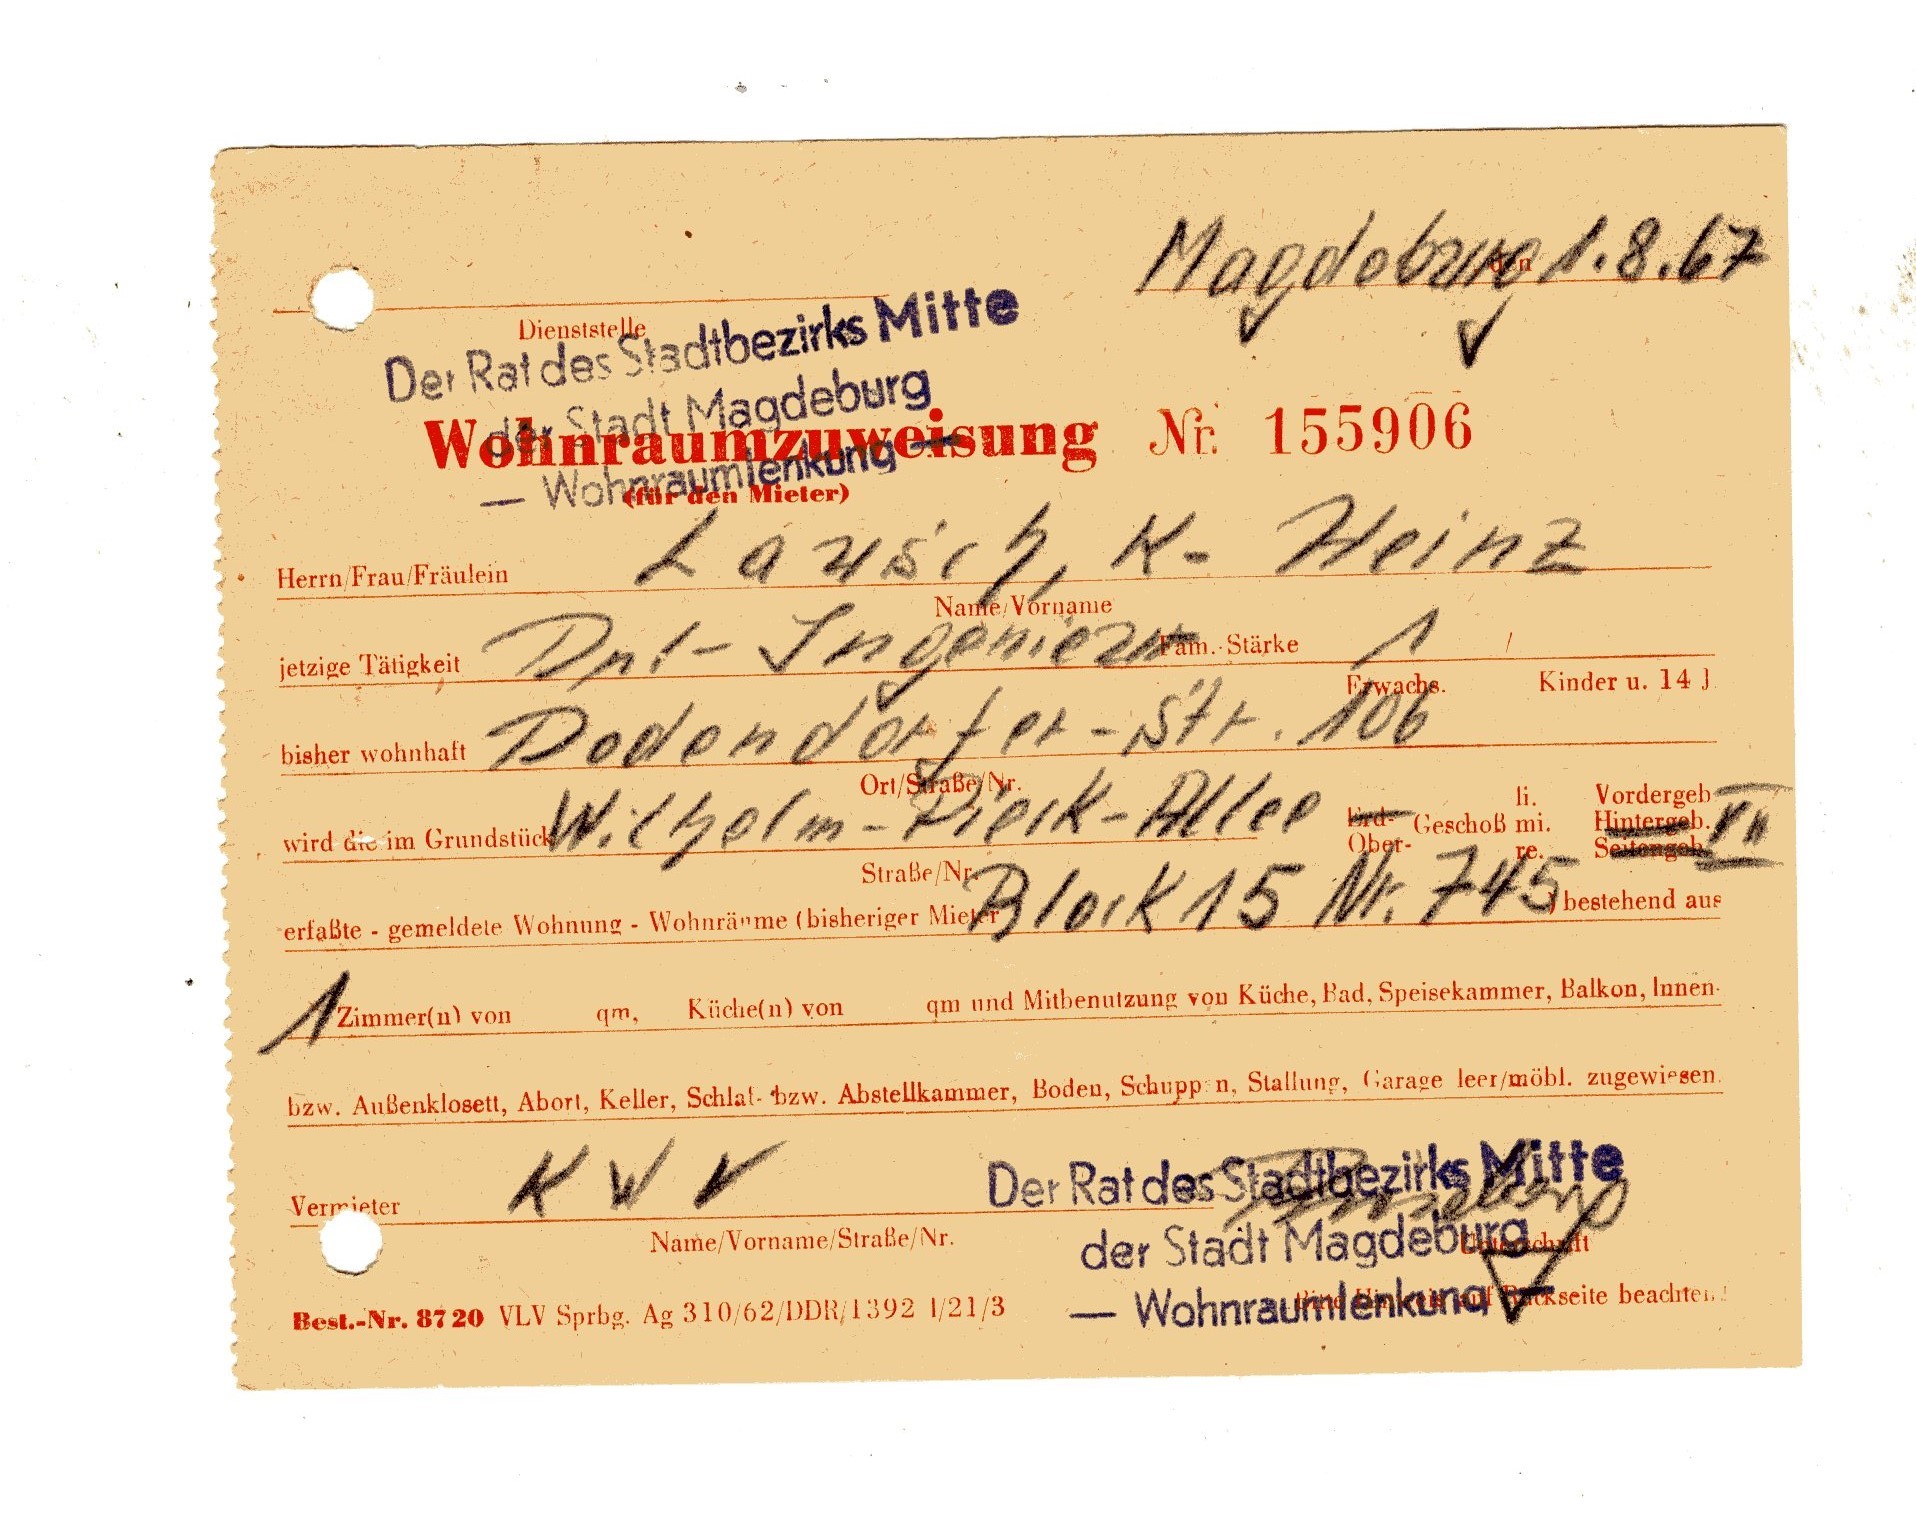 Magdeburg den 1.8.67
Dienststelle
Der Rat des Stadtbezirks Mitte
der Stadt Magdeburg
— Wohnraumlenkung —
Wohnraumzuweisung Nr. 155906
(für den Mieter)
Herrn/Frau/Fräulein Lausch, K- Heinz
Name/Vorname
jetzige Tätigkeit Dpl- Ingenieur Fam.-Stärke 1 /
Erwachs. Kinder u. 14 J
bisher wohnhaft Dodendorfer-Str. 106
Ort/Straße/Nr.
wird die im Grundstück Wilhelm-Pieck-Allee Erd- Ober- Geschoß li. mi. re. Vordergeb. Hintergeb. Seitengeb. VII
Straße/Nr.
erfaßte - gemeldete Wohnung - Wohnräume (bisheriger Mieter Block 15 Nr. 745 ) bestehend aus
1 Zimmer(n) von qm, Küche(n) von qm und Mitbenutzung von Küche, Bad, Speisekammer, Balkon, Innen-
bzw. Außenklosett, Abort, Keller, Schlaf- bzw. Abstellkammer, Boden, Schuppen, Stallung, Garage leer/möbl. zugewiesen.
Vermieter K W V
Name/Vorname/Straße/Nr.
Der Rat des Stadtbezirks Mitte
der Stadt Magdeburg
Unterschrift
— Wohnraumlenkung —
Best.-Nr. 8720 VLV Sprbg. Ag 310/62/DDR/1392 1/21/3 Bitte Hinweis auf Rückseite beachten!